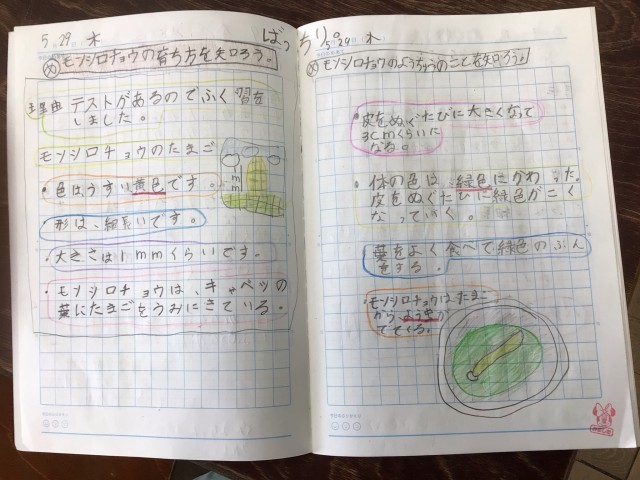 5 29 木
ばっちり。
㋱モンシロチョウの育ち方を知ろう。
理由 テストがあるのでふく習を
しました。
モンシロチョウのたまご
・色はうすい黄色です。
形は、細長いです。
・大きさは1mmくらいです。
・モンシロチョウは、キャベツの
葉にたまごをうみにきている。
1mm
5 29 木
モンシロチョウのようちゅうのことを知ろう。
・皮をぬぐたびに大きくなって
3cmくらいに
なる。
・体の色は、緑色にかわった。
皮をぬぐたびに緑色がこく
なっていく。
葉をよく食べて緑色のふん
をする。
・モンシロチョウは、たまご
から、よう虫が
でてくる。